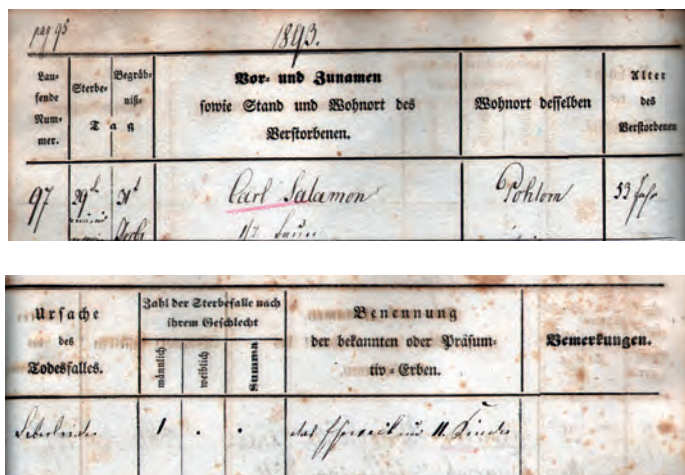 pag 95
1893.
Lau-
fende
Num-
mer.
Sterbe-
Begräb-
niß-
Tag
Vor- und Zunamen
sowie Stand und Wohnort des
Verstorbenen.
Wohnort desselben
Alter
des
Verstorbenen
97
29t
31t
Carl Salamon
Pohlom
53 Jahr
1/2
Ursache
des
Todesfalles.
Zahl der Sterbefalle nach
ihrem Geschlecht
männlich
weiblich
Summa
Benennung
der bekannten oder Präsum-
tiv-Erben.
Bemerkungen.
1 . .
das Eheweib und 11. Kinder